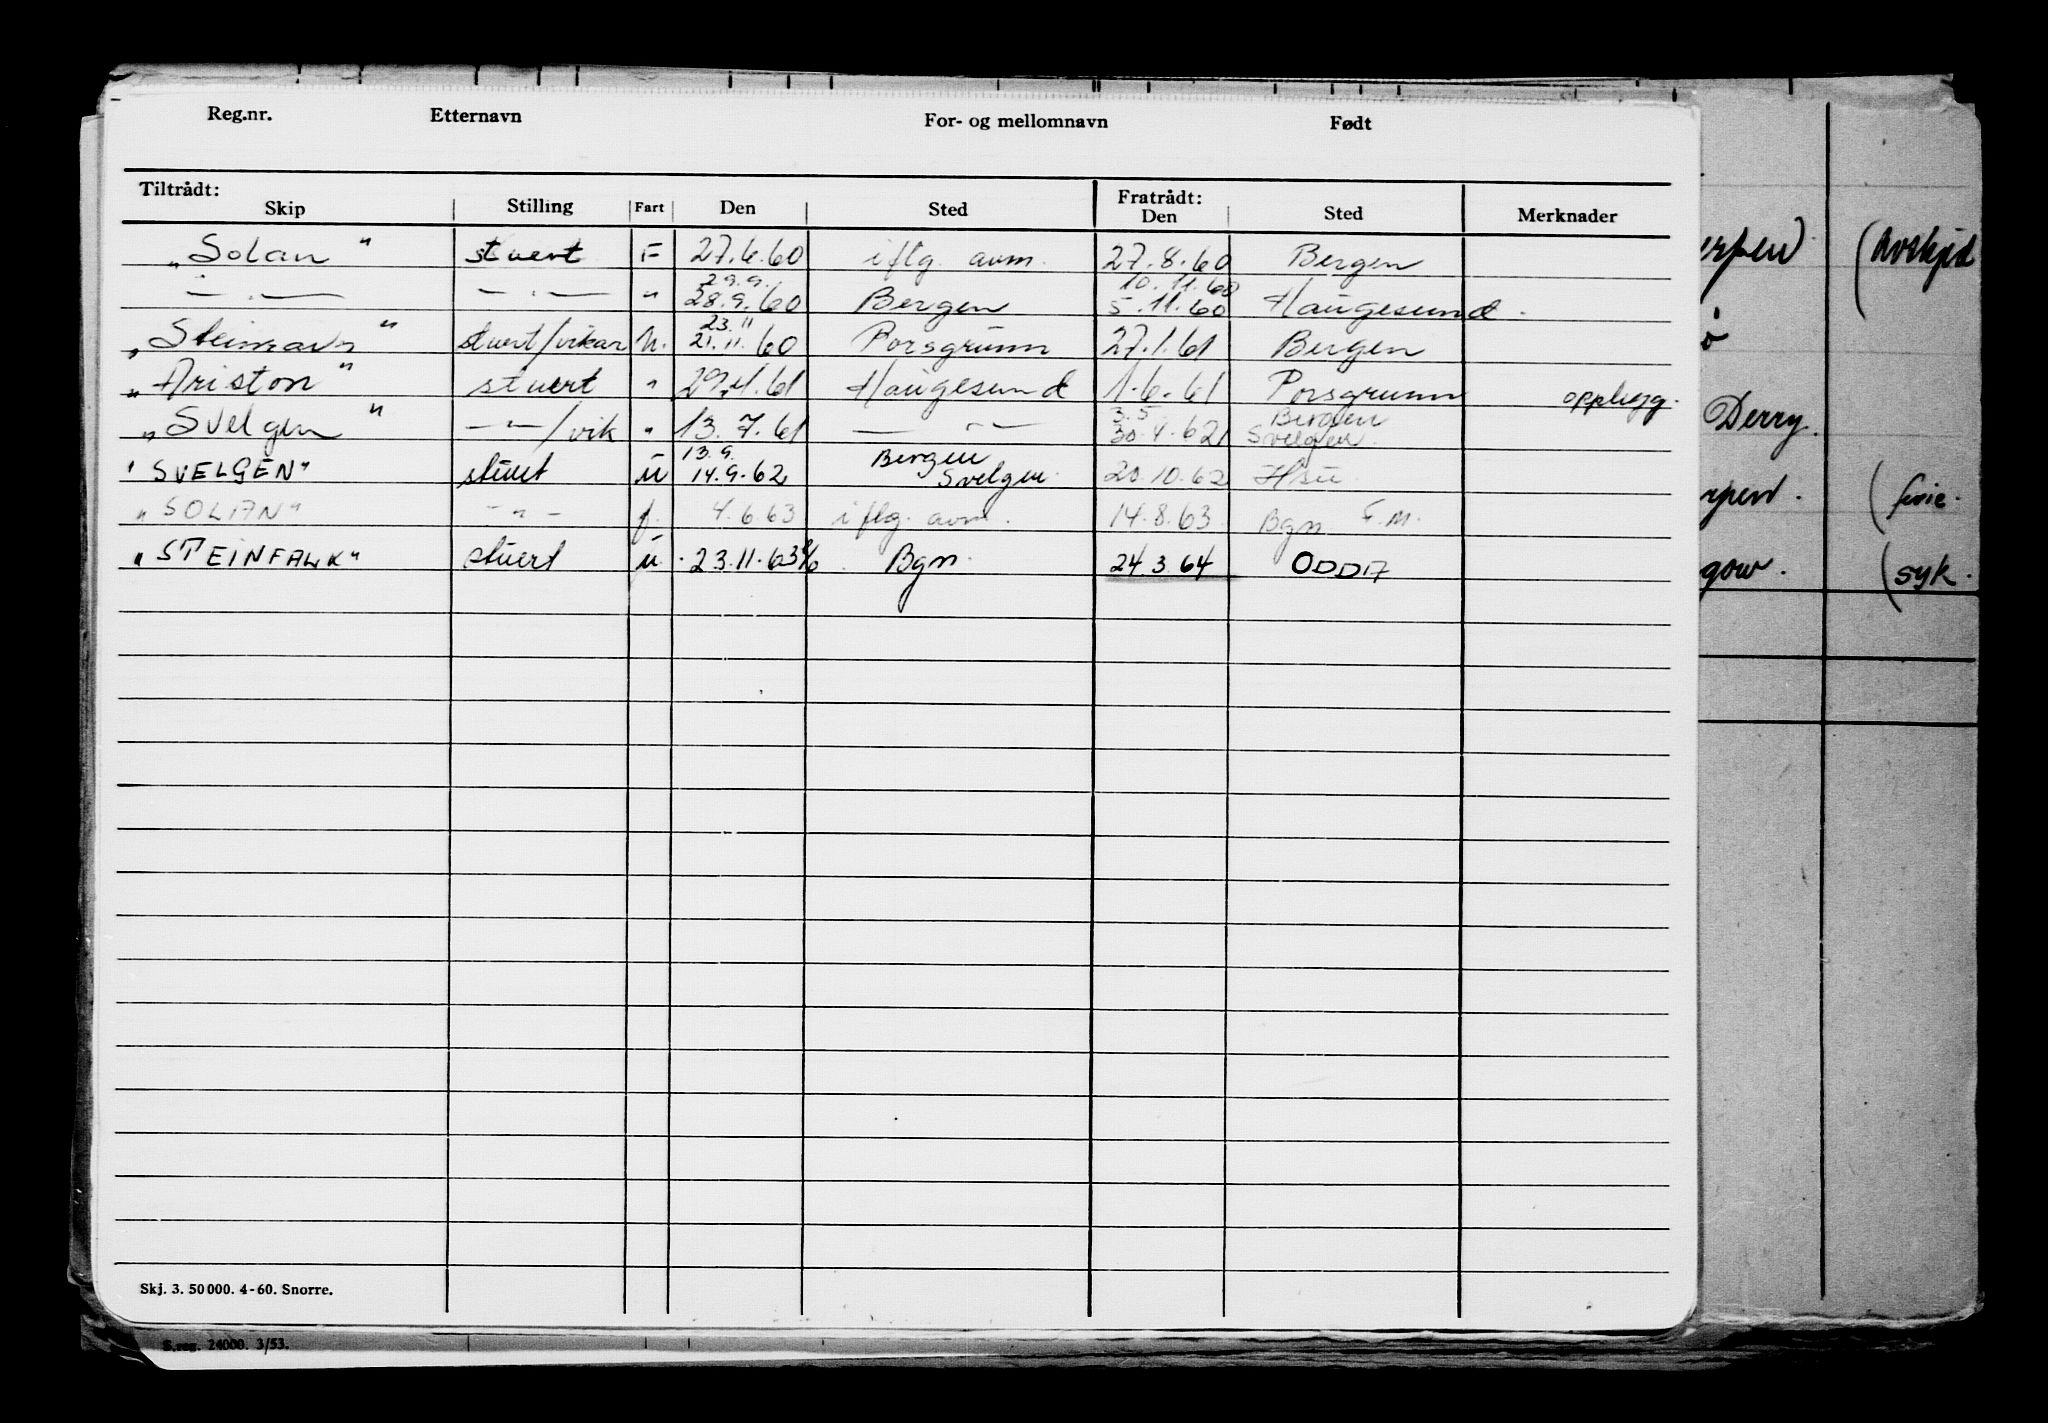 Reg.nr. Etternavn For- og mellomnavn Født
Tiltrådt: Fratrådt:
Skip Stilling Fart Den Sted Den Sted Merknader
"Solan" stuert F 27.6.60 iflg. avm. 27.8.60 Bergen
29.9. 10.11.60
— " — — " — " 28.9.60 Bergen 5.11.60 Haugesund.
23.11
" " stuert/vikar 21.11.60 Porsgrunn 27.1.61 Bergen
"Ariston" stuert " 61 Haugesund 1.6.61 Porsgrunn opplegg.
3.5 Bergen
"Svelgen" — " —/vik " 13.7.61 — " — 30.4.62 Svelgen.
13.9. Bergen
"SVELGEN" stuert u 14.9.62 Svelgen. 20.10.62
"SOLAN" - " - f. 4.6.63 iflg. avm. 14.8.63 Bgn F.M.
"STEINFALK" stuert u. 23.11.63 Bgn. 24.3.64 ODDA
Skj. 3. 50 000. 4-60. Snorre.
S.reg. 24000. 3/53.
rpen (Avskjed
ø
Derry.
rpen. (ferie.
gow. (syk.